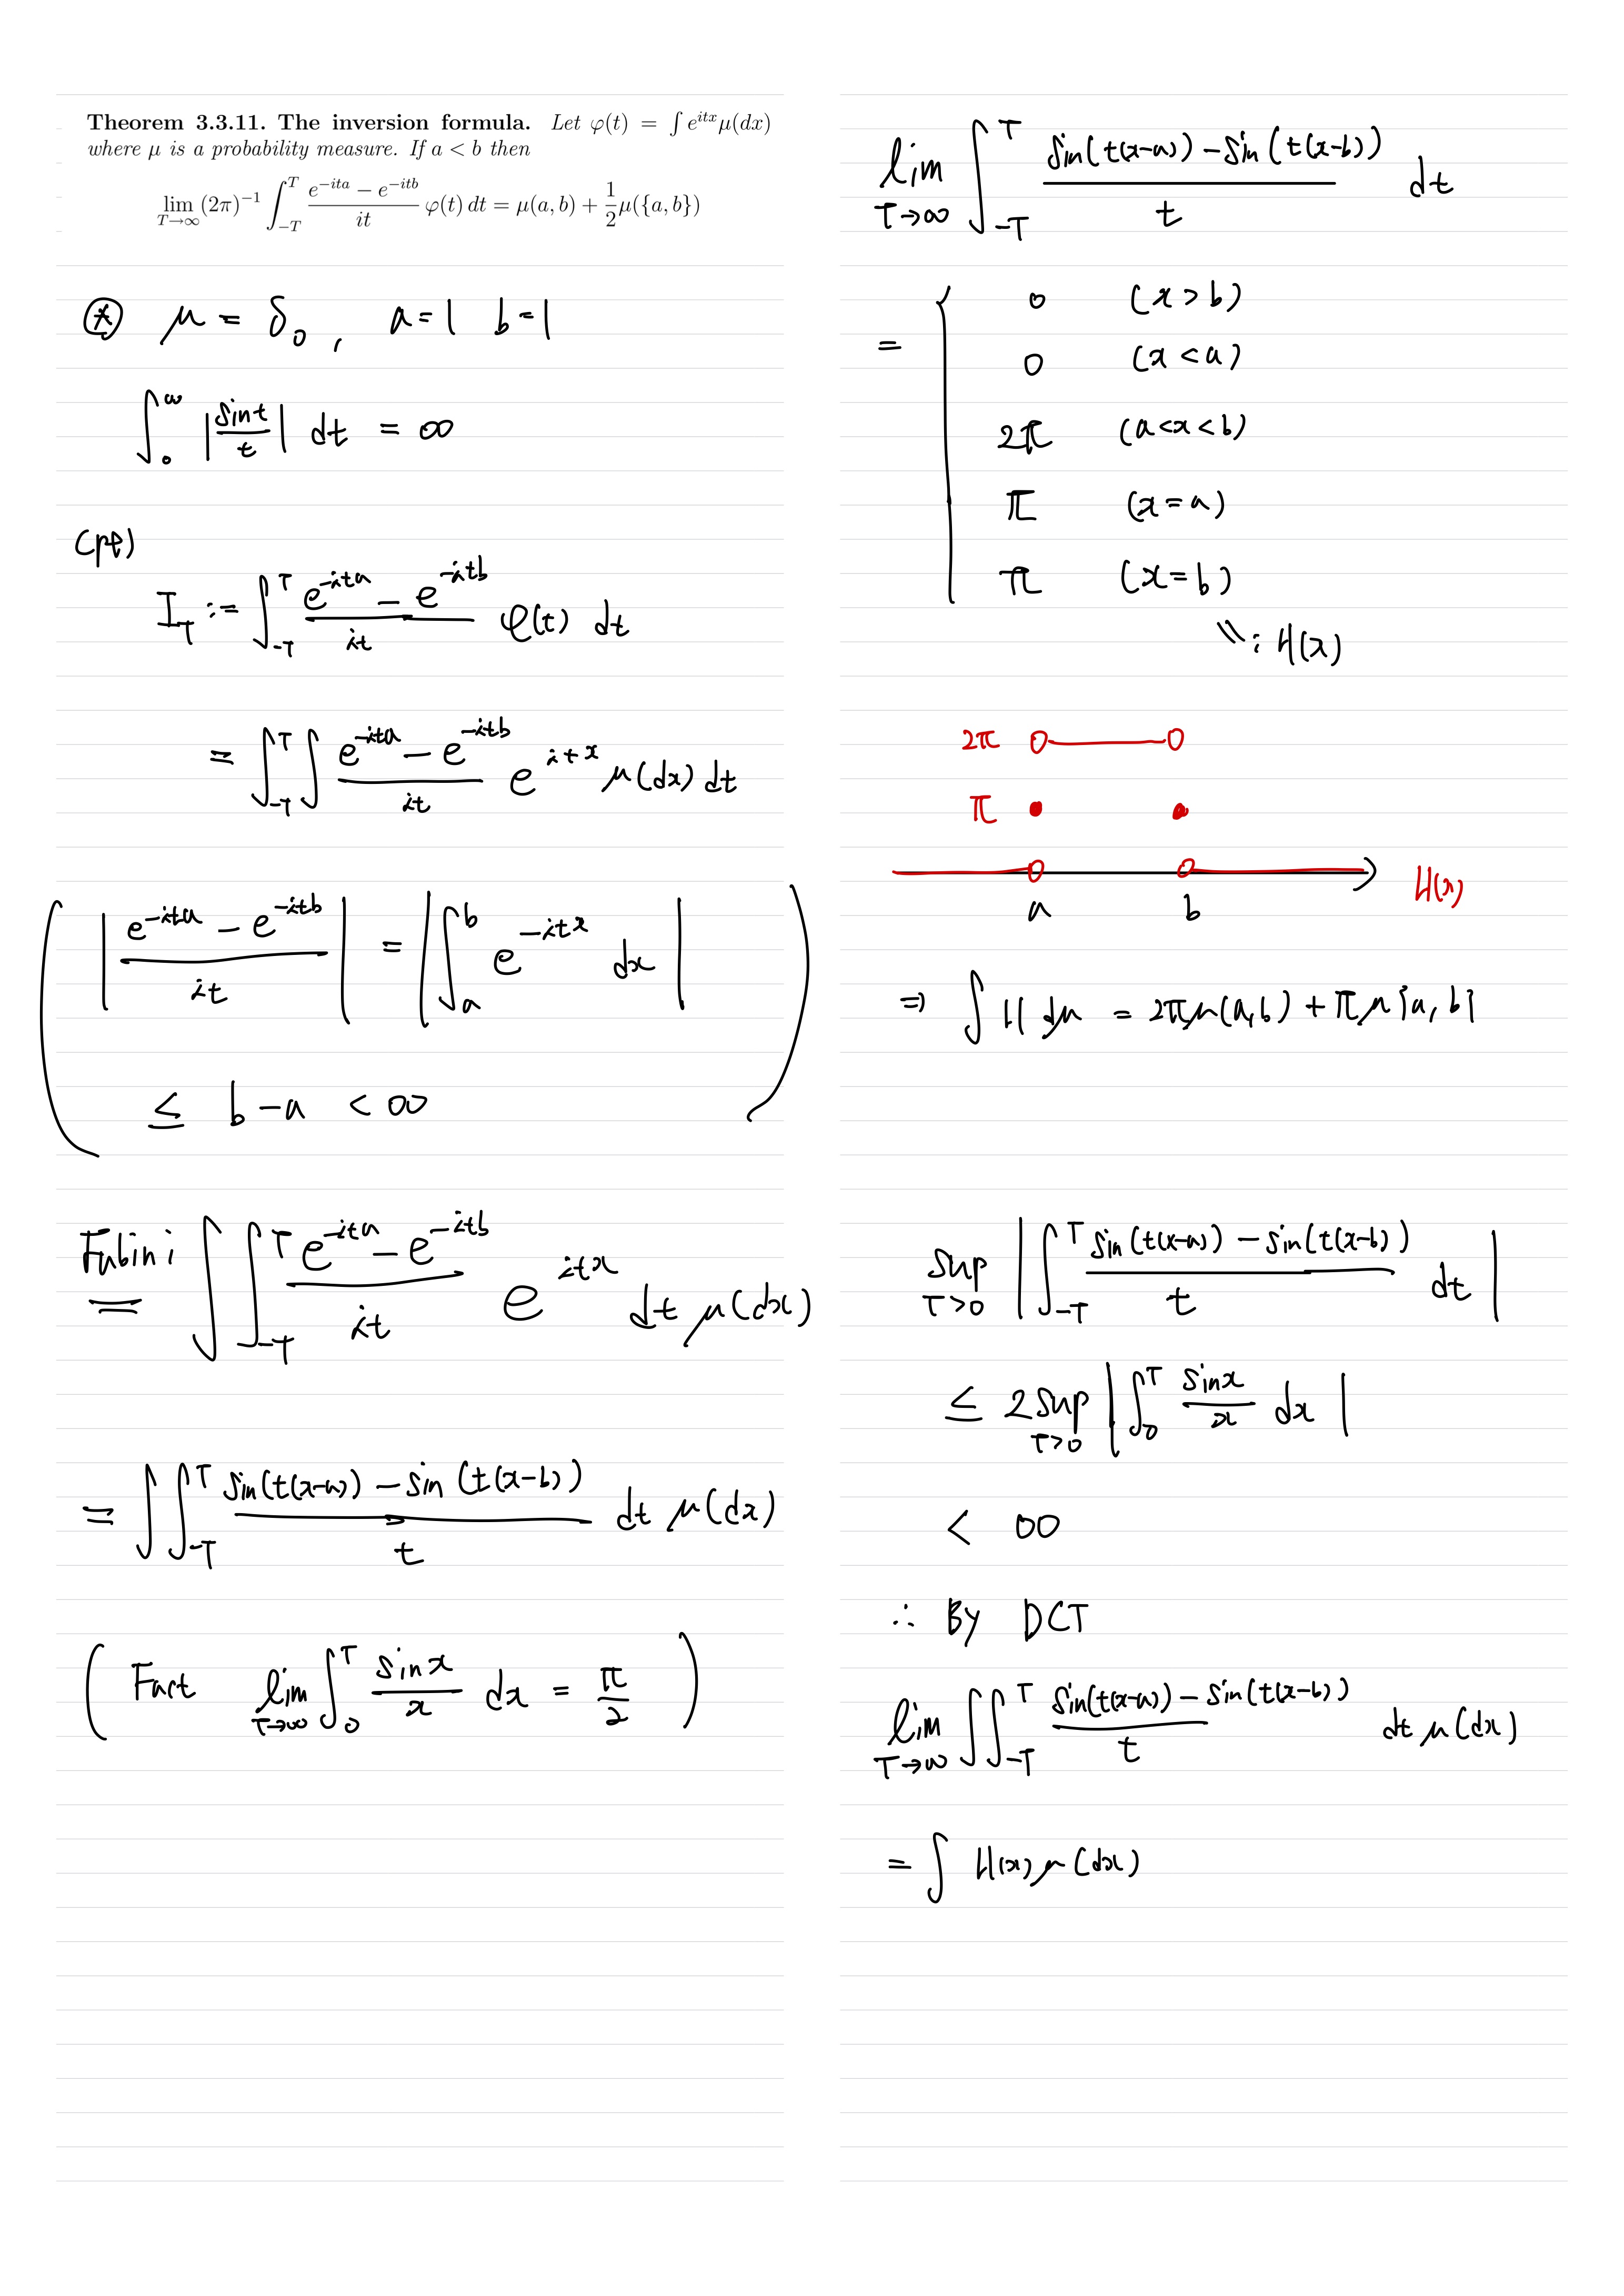 Theorem 3.3.11. The inversion formula. Let φ(t) = ∫ e^{itx} μ(dx)
where μ is a probability measure. If a < b then
lim_{T→∞} (2π)^{-1} ∫_{-T}^{T} \frac{e^{-ita} − e^{-itb}}{it} φ(t) dt = μ(a, b) + \frac{1}{2} μ({a, b})
⊛ μ = δ_0 , a=1 b=1
∫_0^∞ |\frac{sin t}{t}| dt = ∞
(pf)
I_T := ∫_{-T}^{T} \frac{e^{-ita} − e^{-itb}}{it} φ(t) dt
= ∫_{-T}^{T} ∫ \frac{e^{-ita} − e^{-itb}}{it} e^{itx} μ(dx) dt
( | \frac{e^{-ita} − e^{-itb}}{it} | = | ∫_a^b e^{-itx} dx |
≤ b−a < ∞ )
Fubini = ∫ ∫_{-T}^{T} \frac{e^{-ita} − e^{-itb}}{it} e^{itx} dt μ(dx)
= ∫ ∫_{-T}^{T} \frac{sin(t(x−a)) − sin(t(x−b))}{t} dt μ(dx)
( Fact lim_{T→∞} ∫_0^T \frac{sin x}{x} dx = \frac{π}{2} )
lim_{T→∞} ∫_{-T}^{T} \frac{sin(t(x−a)) − sin(t(x−b))}{t} dt
= {
0 (x > b)
0 (x < a)
2π (a<x<b)
π (x=a)
π (x=b)
=: H(x)
2π
π
H(x)
a b
⇒ ∫ H dμ = 2πμ(a,b) + πμ{a, b}
sup_{T>0} | ∫_{-T}^{T} \frac{sin(t(x−a)) − sin(t(x−b))}{t} dt |
≤ 2 sup_{T>0} | ∫_0^T \frac{sin x}{x} dx |
< ∞
∴ By DCT
lim_{T→∞} ∫ ∫_{-T}^{T} \frac{sin(t(x−a)) − sin(t(x−b))}{t} dt μ(dx)
= ∫ H(x) μ(dx)